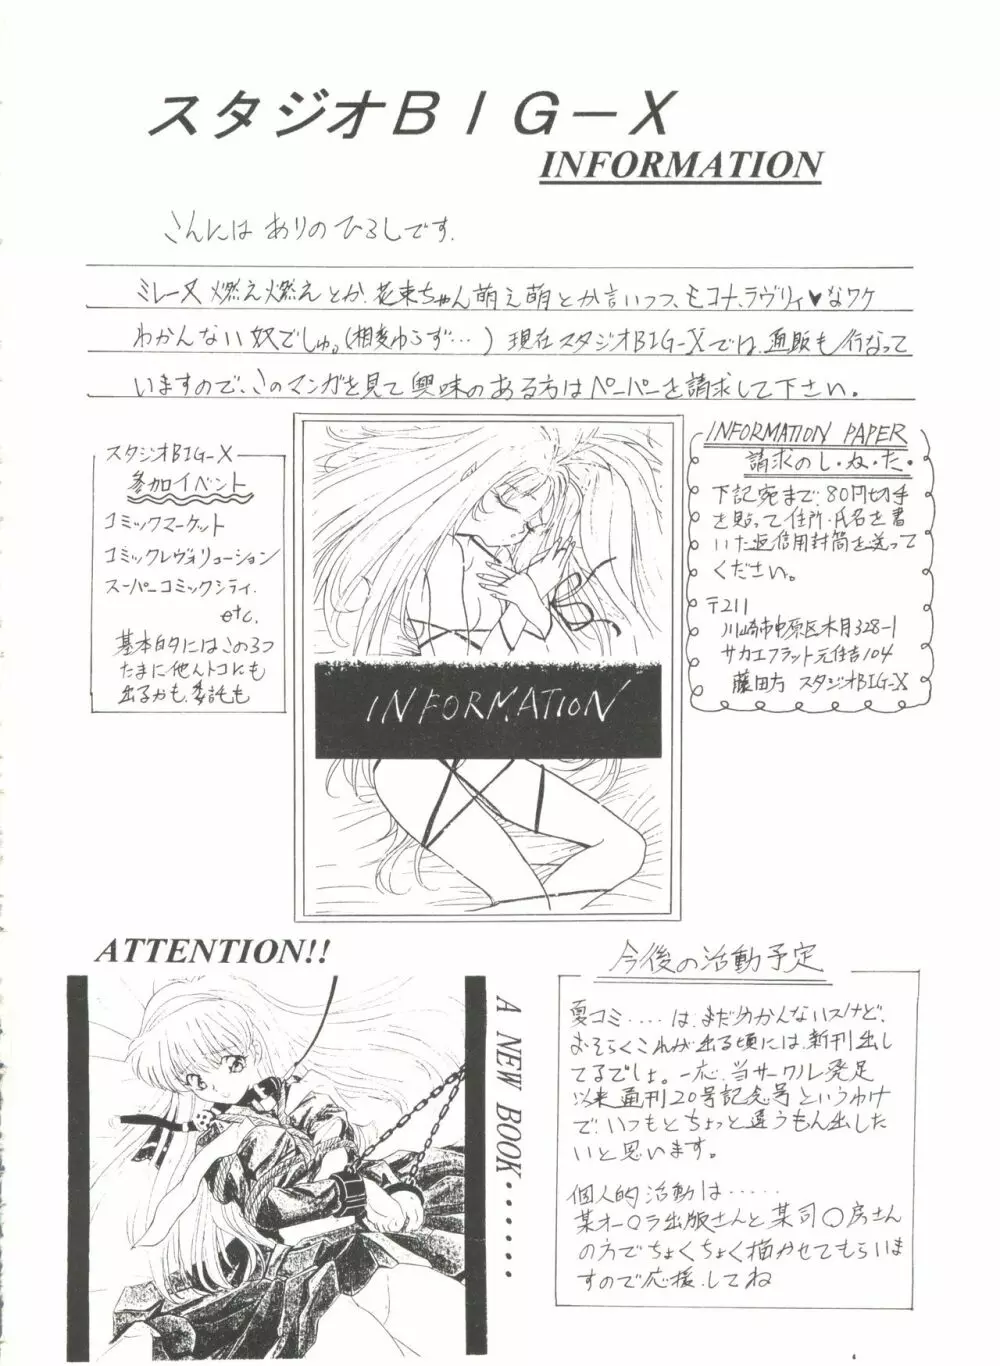 スタジオBIG-X
INFORMATION
こんにちは ありのひろしです。
ミレーヌ燃え燃えとか、花束ちゃん萌え萌とか言いつつ、モコナ、ラヴリィ♥なワケ
わかんない奴でしゅ。(相変わらず…)現在スタジオBIG-Xでは、通販も行なって
いますので、このマンガを見て興味のある方はペーパーを請求して下さい。
スタジオBIG-X
参加イベント
コミックマーケット
コミックレヴォリューション
スーパーコミックシティ.
etc.
基本的にはこの3つ
たまに他んトコにも
出るかも、委託も
INFORMATION
INFORMATION PAPER
請求のし・ね・た・
下記宛まで80円切手
を貼って住所・氏名を書
いた返信用封筒を送って
ください。
〒211
川崎市中原区木月328-1
サカエフラット元住吉104
藤田方 スタジオBIG-X
ATTENTION!!
A NEW BOOK......
今後の活動予定
夏コミ‥‥は、まだ分かんないスけど、
おそらくこれが出る頃には、新刊出し
てるでしょ。一応、当サークル発足
以来通刊20号記念号というわけ
で、いつもとちょっと違うもん出した
いと思います。
個人的活動は‥‥‥
某オー〇ラ出版さんと某司〇房さん
の方でちょくちょく描かせてもらいま
すので応援してね